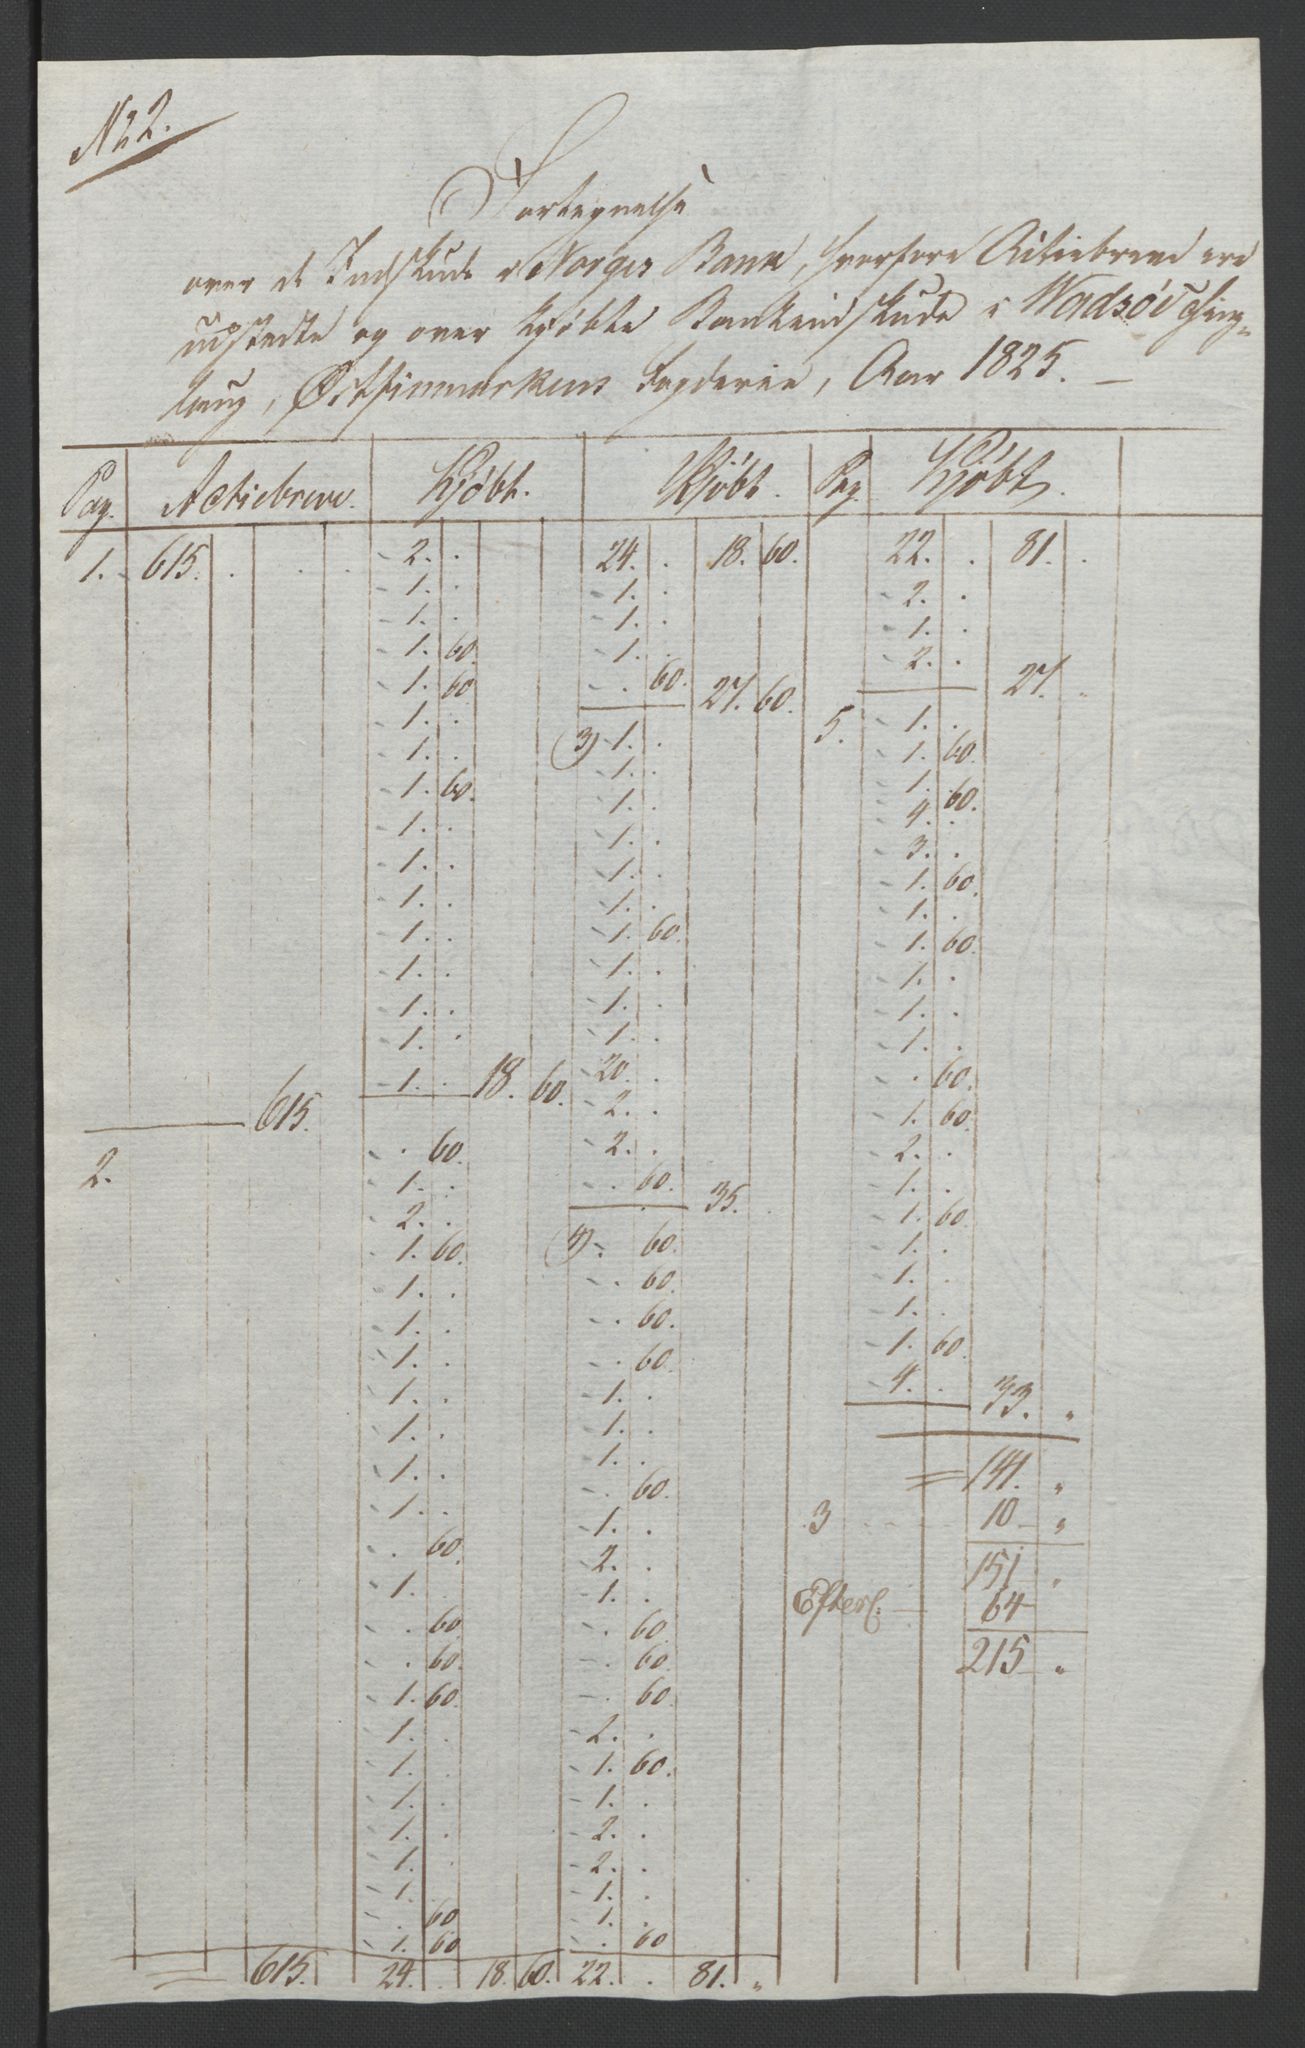 No 2.
Fortegnelse
over de Indskude i Norges Bank, hvorfore Actiebreve ere
udstedte og over kjøbte Bankindskude i Wadsøe Thing-
laug, Østfinmarkens Fogderie, Aar 1825. —
Pag. Actiebreve. Kjöbt. Kjöbt. Pag. Kjöbt.
1. 615. . . . 2. . 24. . 18. 60. 22. . 81. .
1. . 1. . 2. .
1. . 1. . 1. .
1. 60. 1. . 2. . 27. .
1. 60 . 60. 27. 60. 5. 1. .
1. . 3) 1. . 1. 60.
1. . 1. . 1. 60.
1. 60. 1. . 4. .
1. . 1. . 3. .
1. . 1. . 1. 60.
1. . 1. . 1. .
1. . 1. 60. 1. 60.
1. . 1. . 1. .
1. . 1. . 1. .
1. . 1. . 1. .
615. 1. . 18. 60. 20. . . 60.
2. . 1. 60.
2. . 60. 2. . 2. .
1. . . 60. 35. . 1. .
2. . 1. 60.
1. 60. 4) . 60. 1. .
1. . . 60. 1. .
1. . . 60. 1. .
1. . . 60. 1. 60.
1. . 1. . 4. . 33. "
1. . 1. .
1. . 1. . = 141. "
1. . . 60. 3 10 "
. 60. 1. . 151 "
1. . 2. . Efterl: 64
. 60. 1. . 215 "
. 60. . 60.
1. 60. . 60.
1. . . 60.
1. . 2. .
1. . 1. 60.
1. . 1. .
1. . 2. .
1. . 2. .
. 60 1. .
1. 60 1. .
. 60
= 615. 24. . 18. 60. 22. . 81. "